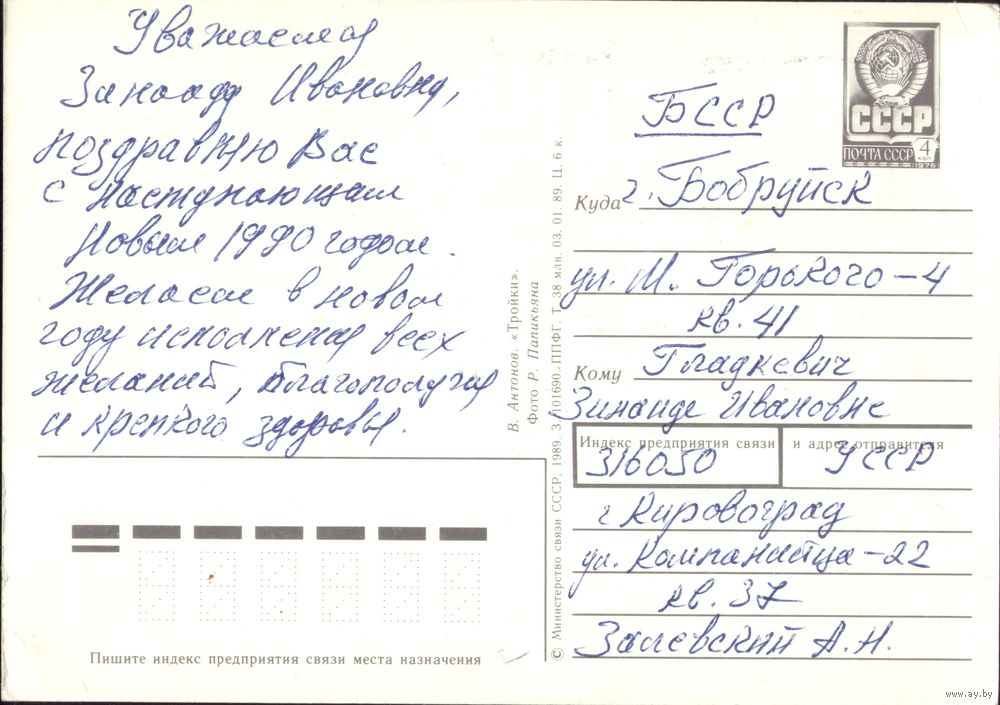 Уважаемая
Зинаида Ивановна,
поздравляю Вас
с наступающим
Новым 1990 годом.
Желаем в новом
году исполнения всех
желаний, благополучия
и крепкого здоровья.
В. Антонов. «Тройки».
Фото Р. Папикьяна
© Министерство связи СССР, 1989. З. 101690. ППФГ. Т. 38 млн. 03. 01. 89. Ц. 6 к.
СССР
ПОЧТА СССР
4
КОП
1976
БССР
Куда г. Бобруйск
ул. М. Горького - 4
кв. 41
Кому Гладкевич
Зинаиде Ивановне
Индекс предприятия связи и адрес отправителя
316050 УССР
г Кировоград
ул. Компанийца - 22
кв. 37
А. Н.
Пишите индекс предприятия связи места назначения
www.ay.by